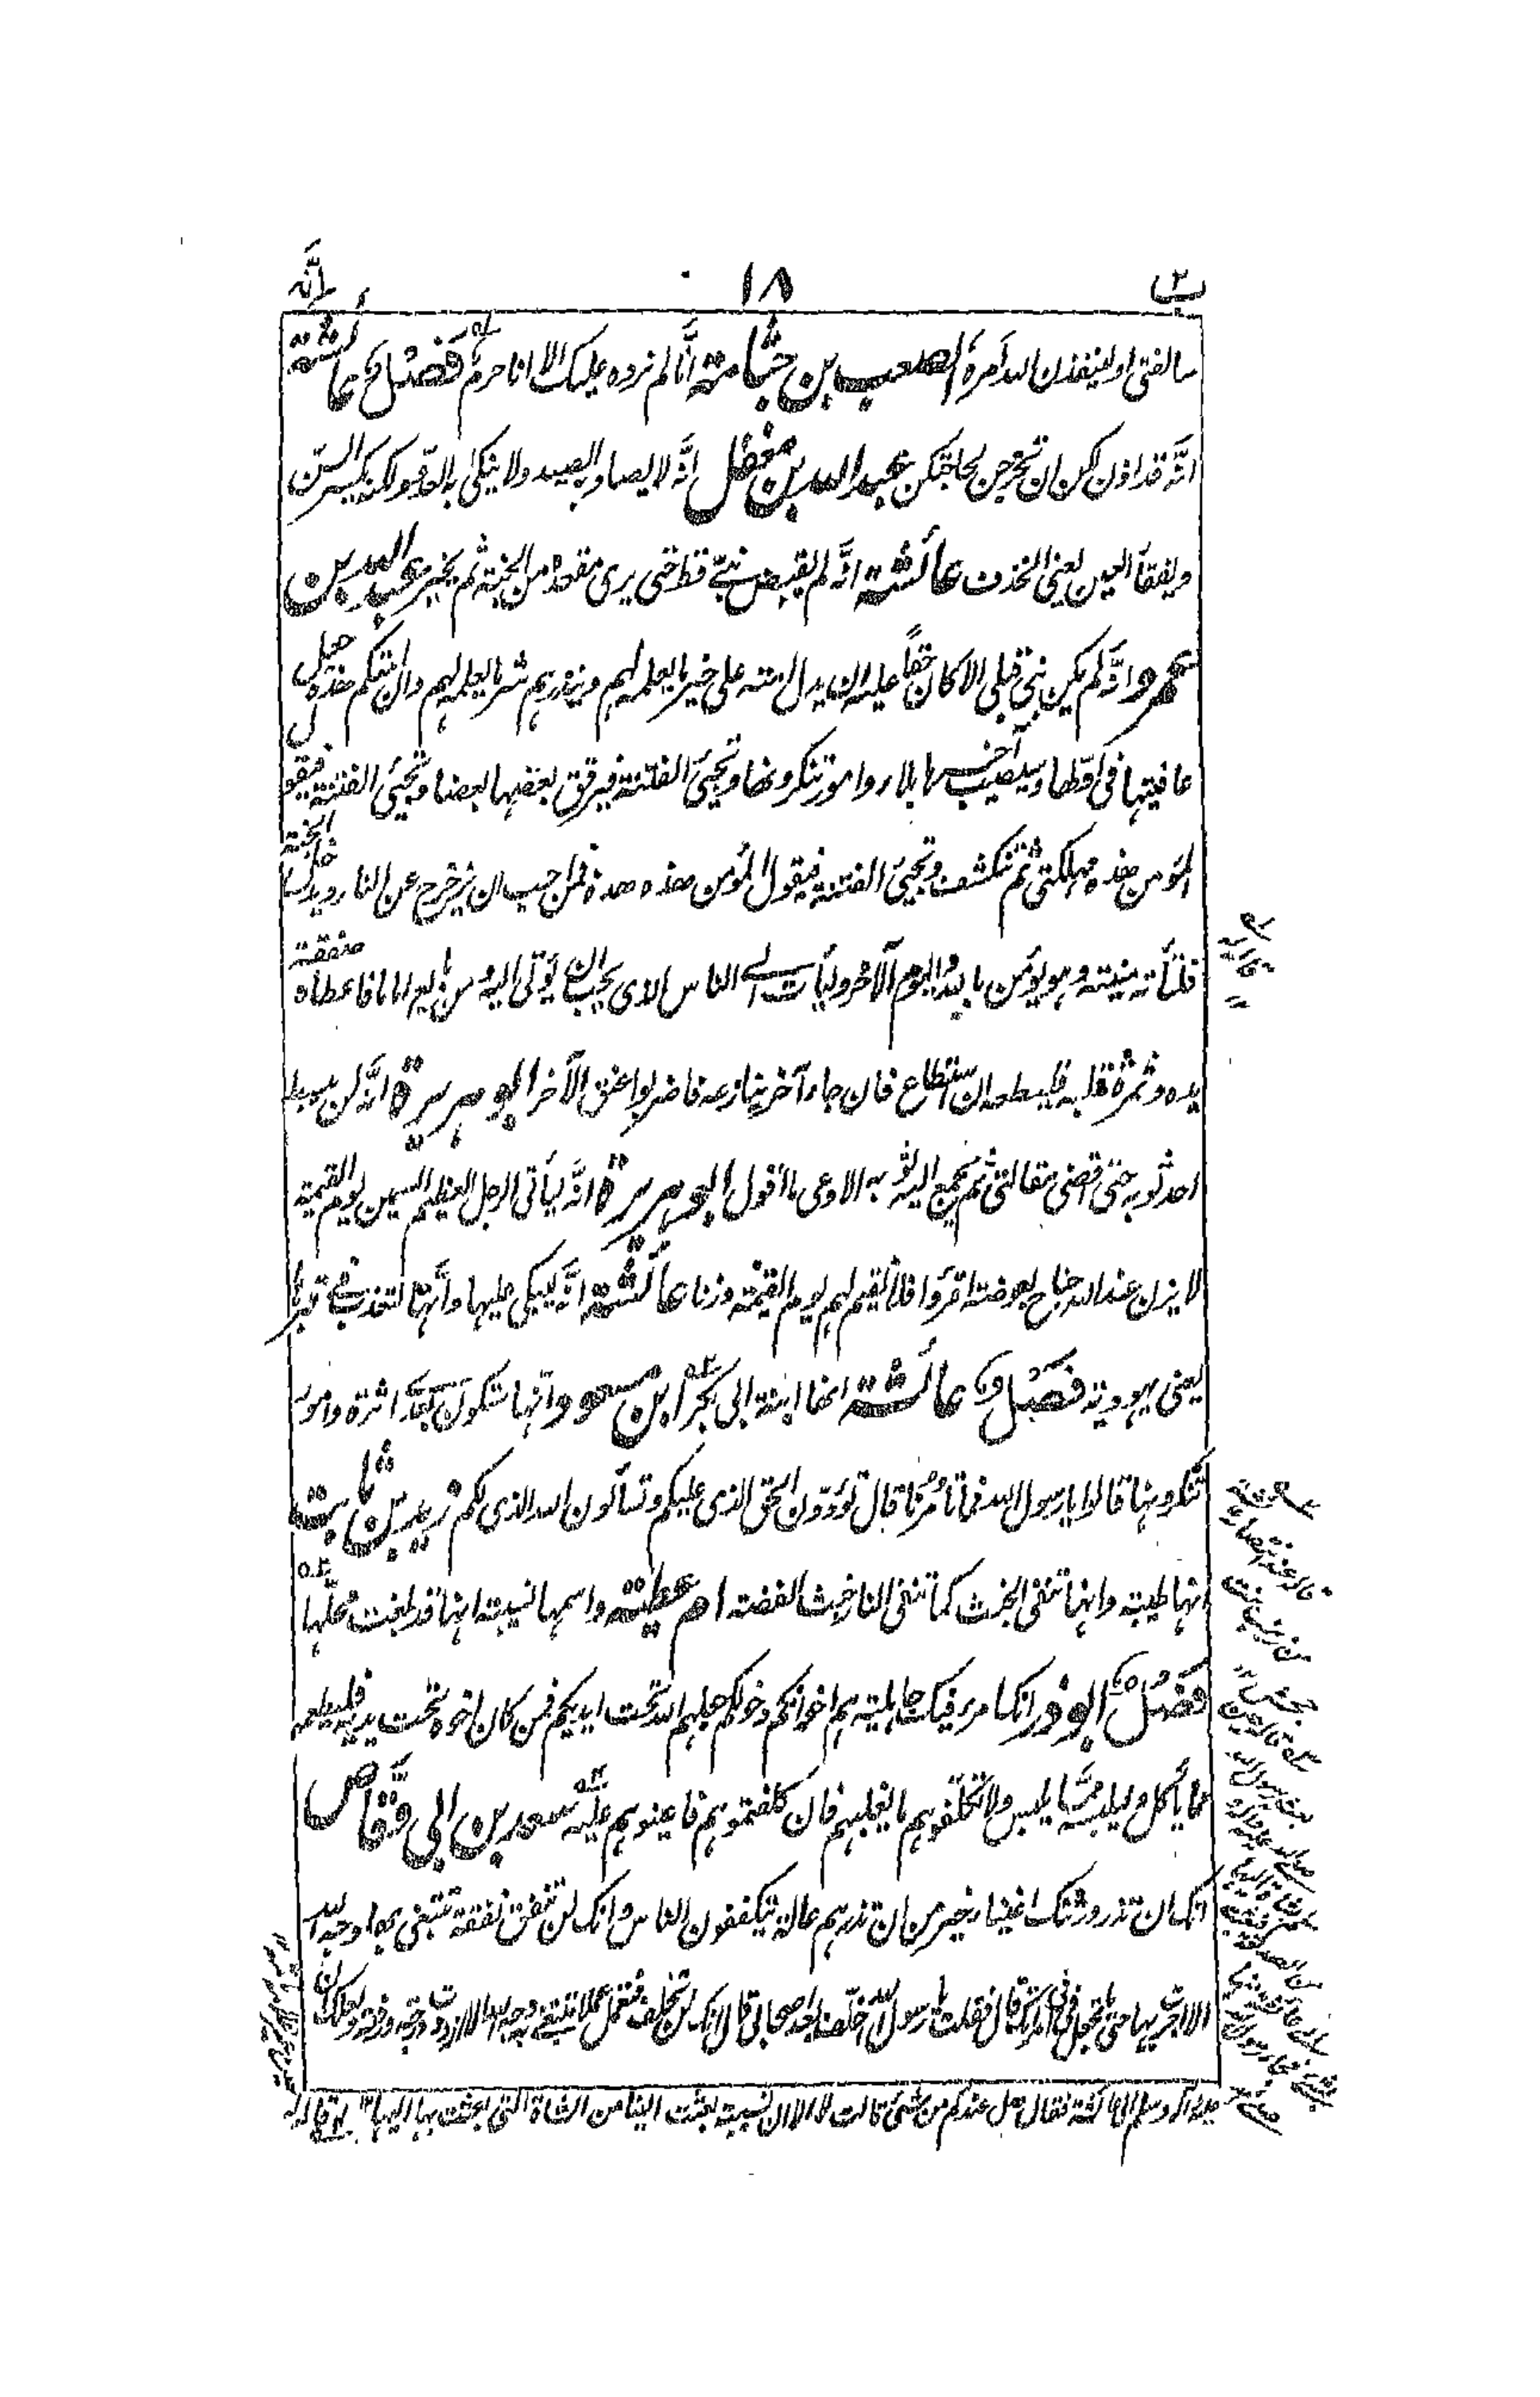 ب٢ ١٨ إنّه
سالفتی او لینفذن الله امره الصعب بن جثامة انّا لم نرده علیک الا انا حرم فَصْل و عائشة
انّه قد اذن لکن ان تخرجن لحاجتکن عبد الله بن مغفل انّه لا یصاد به الصید ولا ینکی به العدو ولکنه یکسر السنّ
ویفقأ العین یعنی الخذف عائشة انّه لم یقبض نبیّ قط حتی یری مقعده من الجنة ثم یخیر عبد الله بن
عمرو انّه لم یکن نبی قبلی الا کان حقاً علیه ان یدل امته علی خیر ما یعلمه لهم وینذرهم شر ما یعلمه لهم وان امتکم هذه جعل
عافیتها فی اوّلها وسیصیب آخرها بلاء وامور تنکرونها وتجیئ الفتنة فیرقق بعضها بعضا وتجیئ الفتنة فیقول
المؤمن هذه مهلکتی ثم تنکشف وتجیئ الفتنة فیقول المؤمن هذه هذه فمن احب ان یزحزح عن النار ویدخل الجنة
فلتأته منیته وهو یؤمن بالله والیوم الآخر ولیأت الی الناس الذی یحب ان یؤتی الیه ومن بایع اماما فاعطاه صفقة
یده وثمرة قلبه فلیطعه ان استطاع فان جاء آخر ینازعه فاضربوا عنق الآخر ابو هریرة انّه لن یبسط
احد ثوبه حتی اقضی مقالتی ثم یجمع الیه ثوبه الا وعی ما اقول ابو هریرة انّه لیأتی الرجل العظیم السمین یوم القیمة
لا یزن عند الله جناح بعوضة اقرؤا فلا نقیم لهم یوم القیمة وزنا عائشة انّه لیبکی علیها وانّها لتعذب فی قبرها
یعنی یهودیة فَصْل و عائشة انها ابنة ابی بکر ابن مسعود انّها ستکون بعدی اثرة وامور
تنکرونها قالوا یا رسول الله فما تأمرنا قال تؤدّون الحق الذی علیکم وتسألون الله الذی لکم زید بن ثابت
انها طیبة وانها تنفی الخبث کما تنفی النار خبث الفضة ام عطیة واسمها نسیبة انها قد بلغت محلّها
فَصْل ابو ذر انک امرء فیک جاهلیة هم اخوانکم وخولکم جعلهم الله تحت ایدیکم فمن کان اخوه تحت یدیه فلیطعمه
مما یأکل ولیلبسه مما یلبس ولا تکلفوهم ما یغلبهم فان کلفتموهم فاعینوهم علیه سعد بن ابی وقّاص
انک ان تذر ورثتک اغنیاء خیر من ان تذرهم عالة یتکففون الناس وانک لن تنفق نفقة تبتغی بها وجه الله
الا اجرت بها حتی ما تجعل فی فی امرأتک قال فقلت یا رسول الله اخلّف بعد اصحابی قال انک لن تخلف فتعمل عملا تبتغی به وجه الله الا ازددت به درجة ورفعة ولعلک ان
علیه وآله وسلم الی عائشة فقال هل عندکم من شئ قالت لا الا ان نسیبة بعثت الینا من الشاة التی بعثت بها الیها